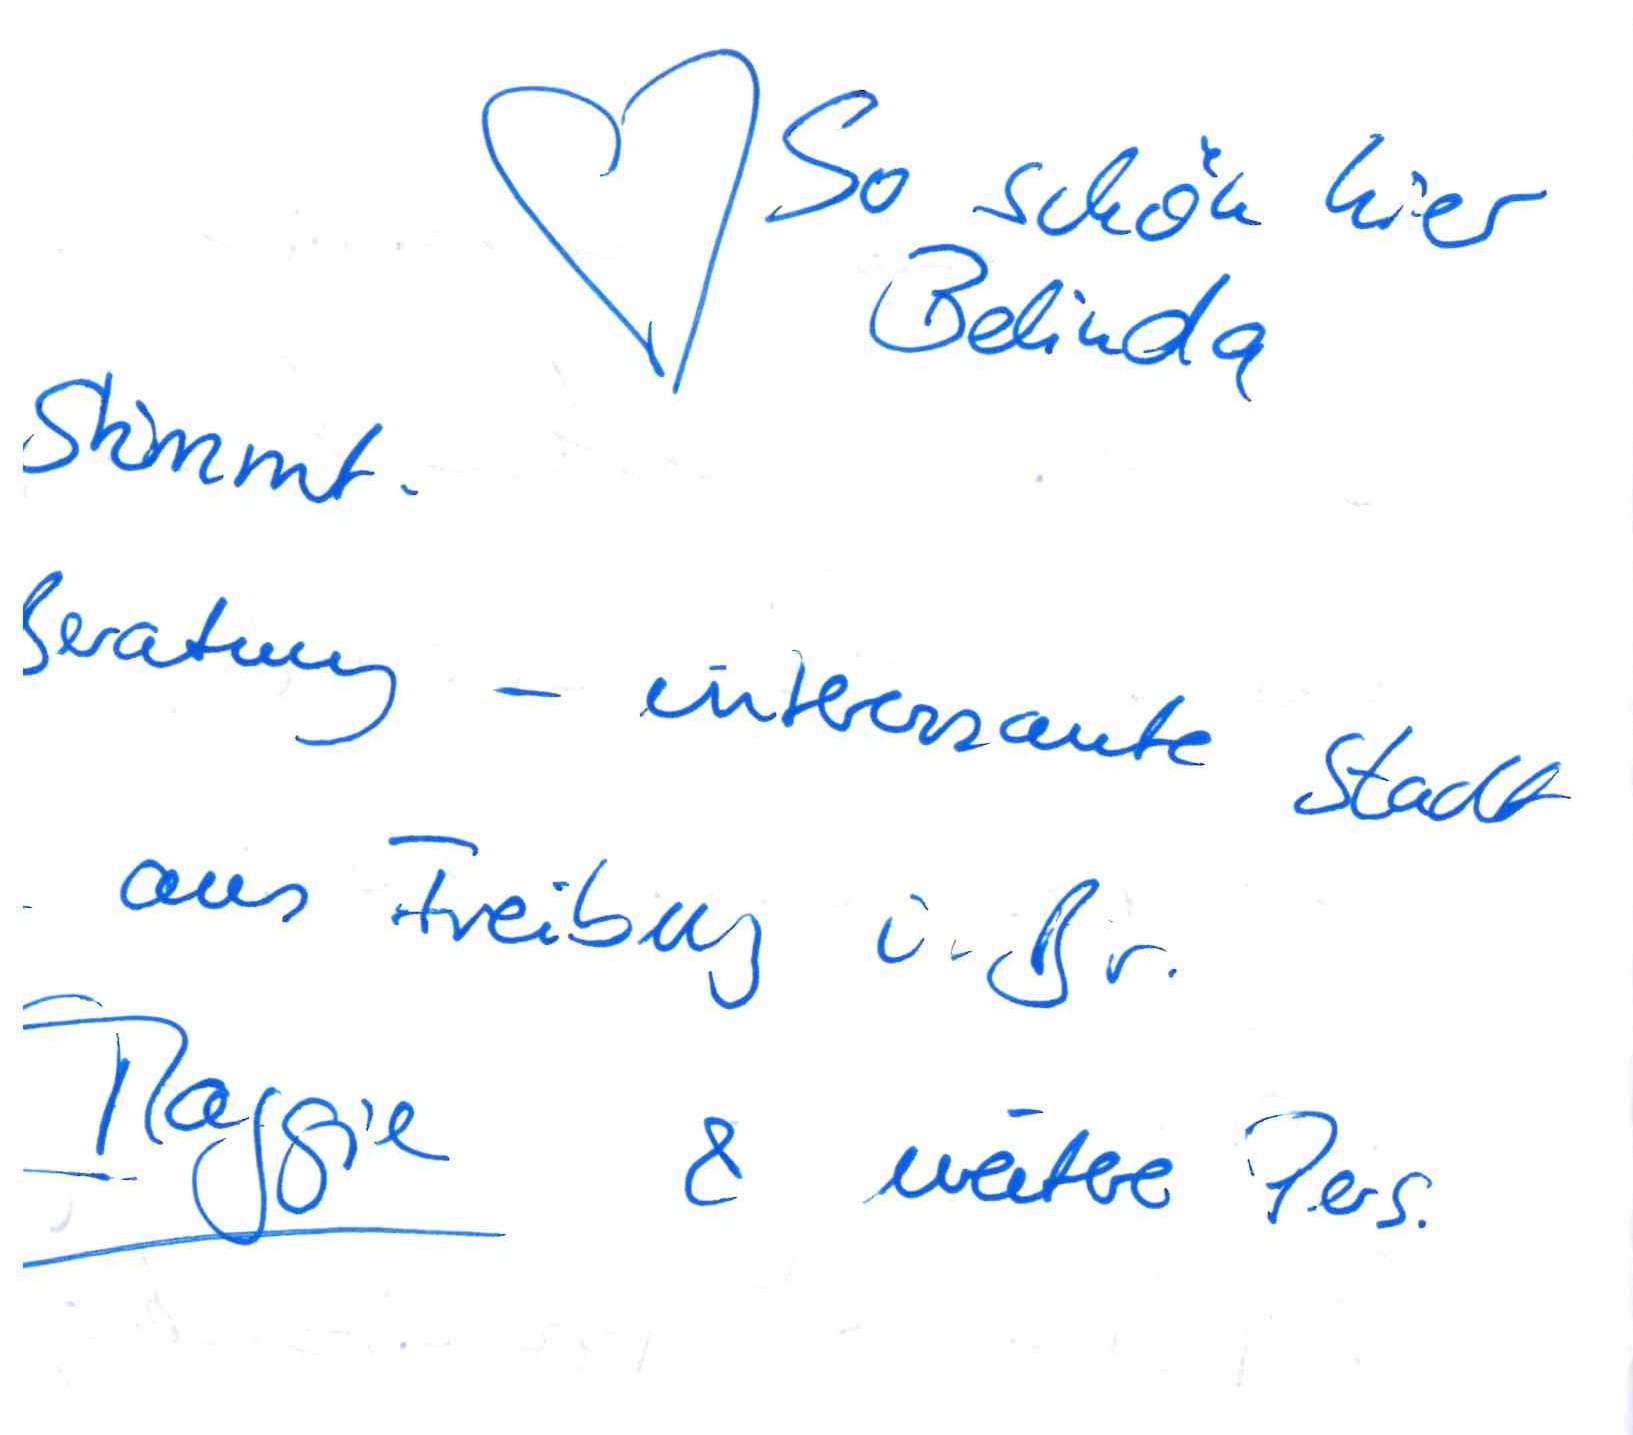 So schön hier
Belinda
Stimmt.
Beratung – interessante Stadt
- aus Freiburg i. Br.
Maggie & weitere Pers.